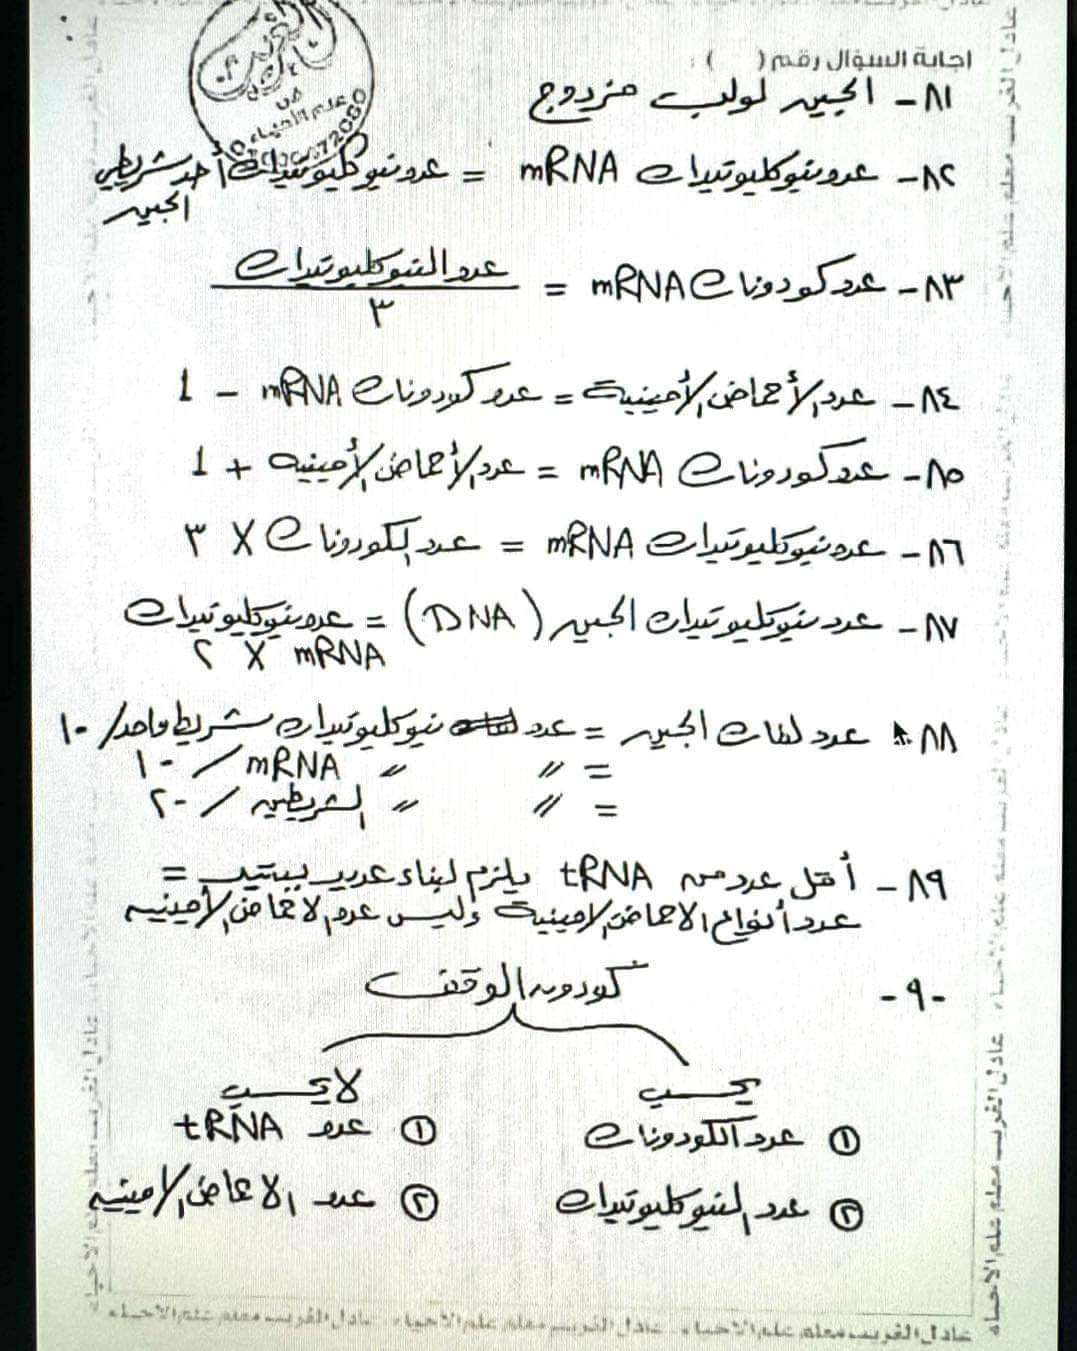 اجابة السؤال رقم ( ) :
٨١- الجين لولب مزدوج
٨٢- عدد نيوكليوتيدات mRNA = عدد نيوكليوتيدات أحد شريطي
الجين
٨٣- عدد كودونات mRNA = عدد النيوكليوتيدات
٣
٨٤- عدد الأحماض الأمينية = عدد كودونات mRNA - 1
٨٥- عدد كودونات mRNA = عدد الأحماض الأمينيه + 1
٨٦- عدد نيوكليوتيدات mRNA = عدد الكودونات X ٣
٨٧- عدد نيوكليوتيدات الجين (DNA) = عدد نيوكليوتيدات
mRNA X ٢
٨٨- عدد لفات الجين = عدد نيوكليوتيدات شريط واحد / ١٠
= 〃 〃 mRNA / ١٠
= 〃 〃 الشريطين / ٢٠
٨٩- أقل عدد من tRNA يلزم لبناء عديد ببتيد =
عدد أنواع الاحماض الامينية وليس عدد الاحماض الأمينيه
٩٠- كودون الوقف
يحسب لا يحسب
① عدد الكودونات ① عدد tRNA
② عدد النيوكليوتيدات ② عدد الاحماض الامينيه
عادل الغريب معلم علم الاحياء عادل الغريب معلم علم الاحياء عادل الغريب معلم علم الاحياء